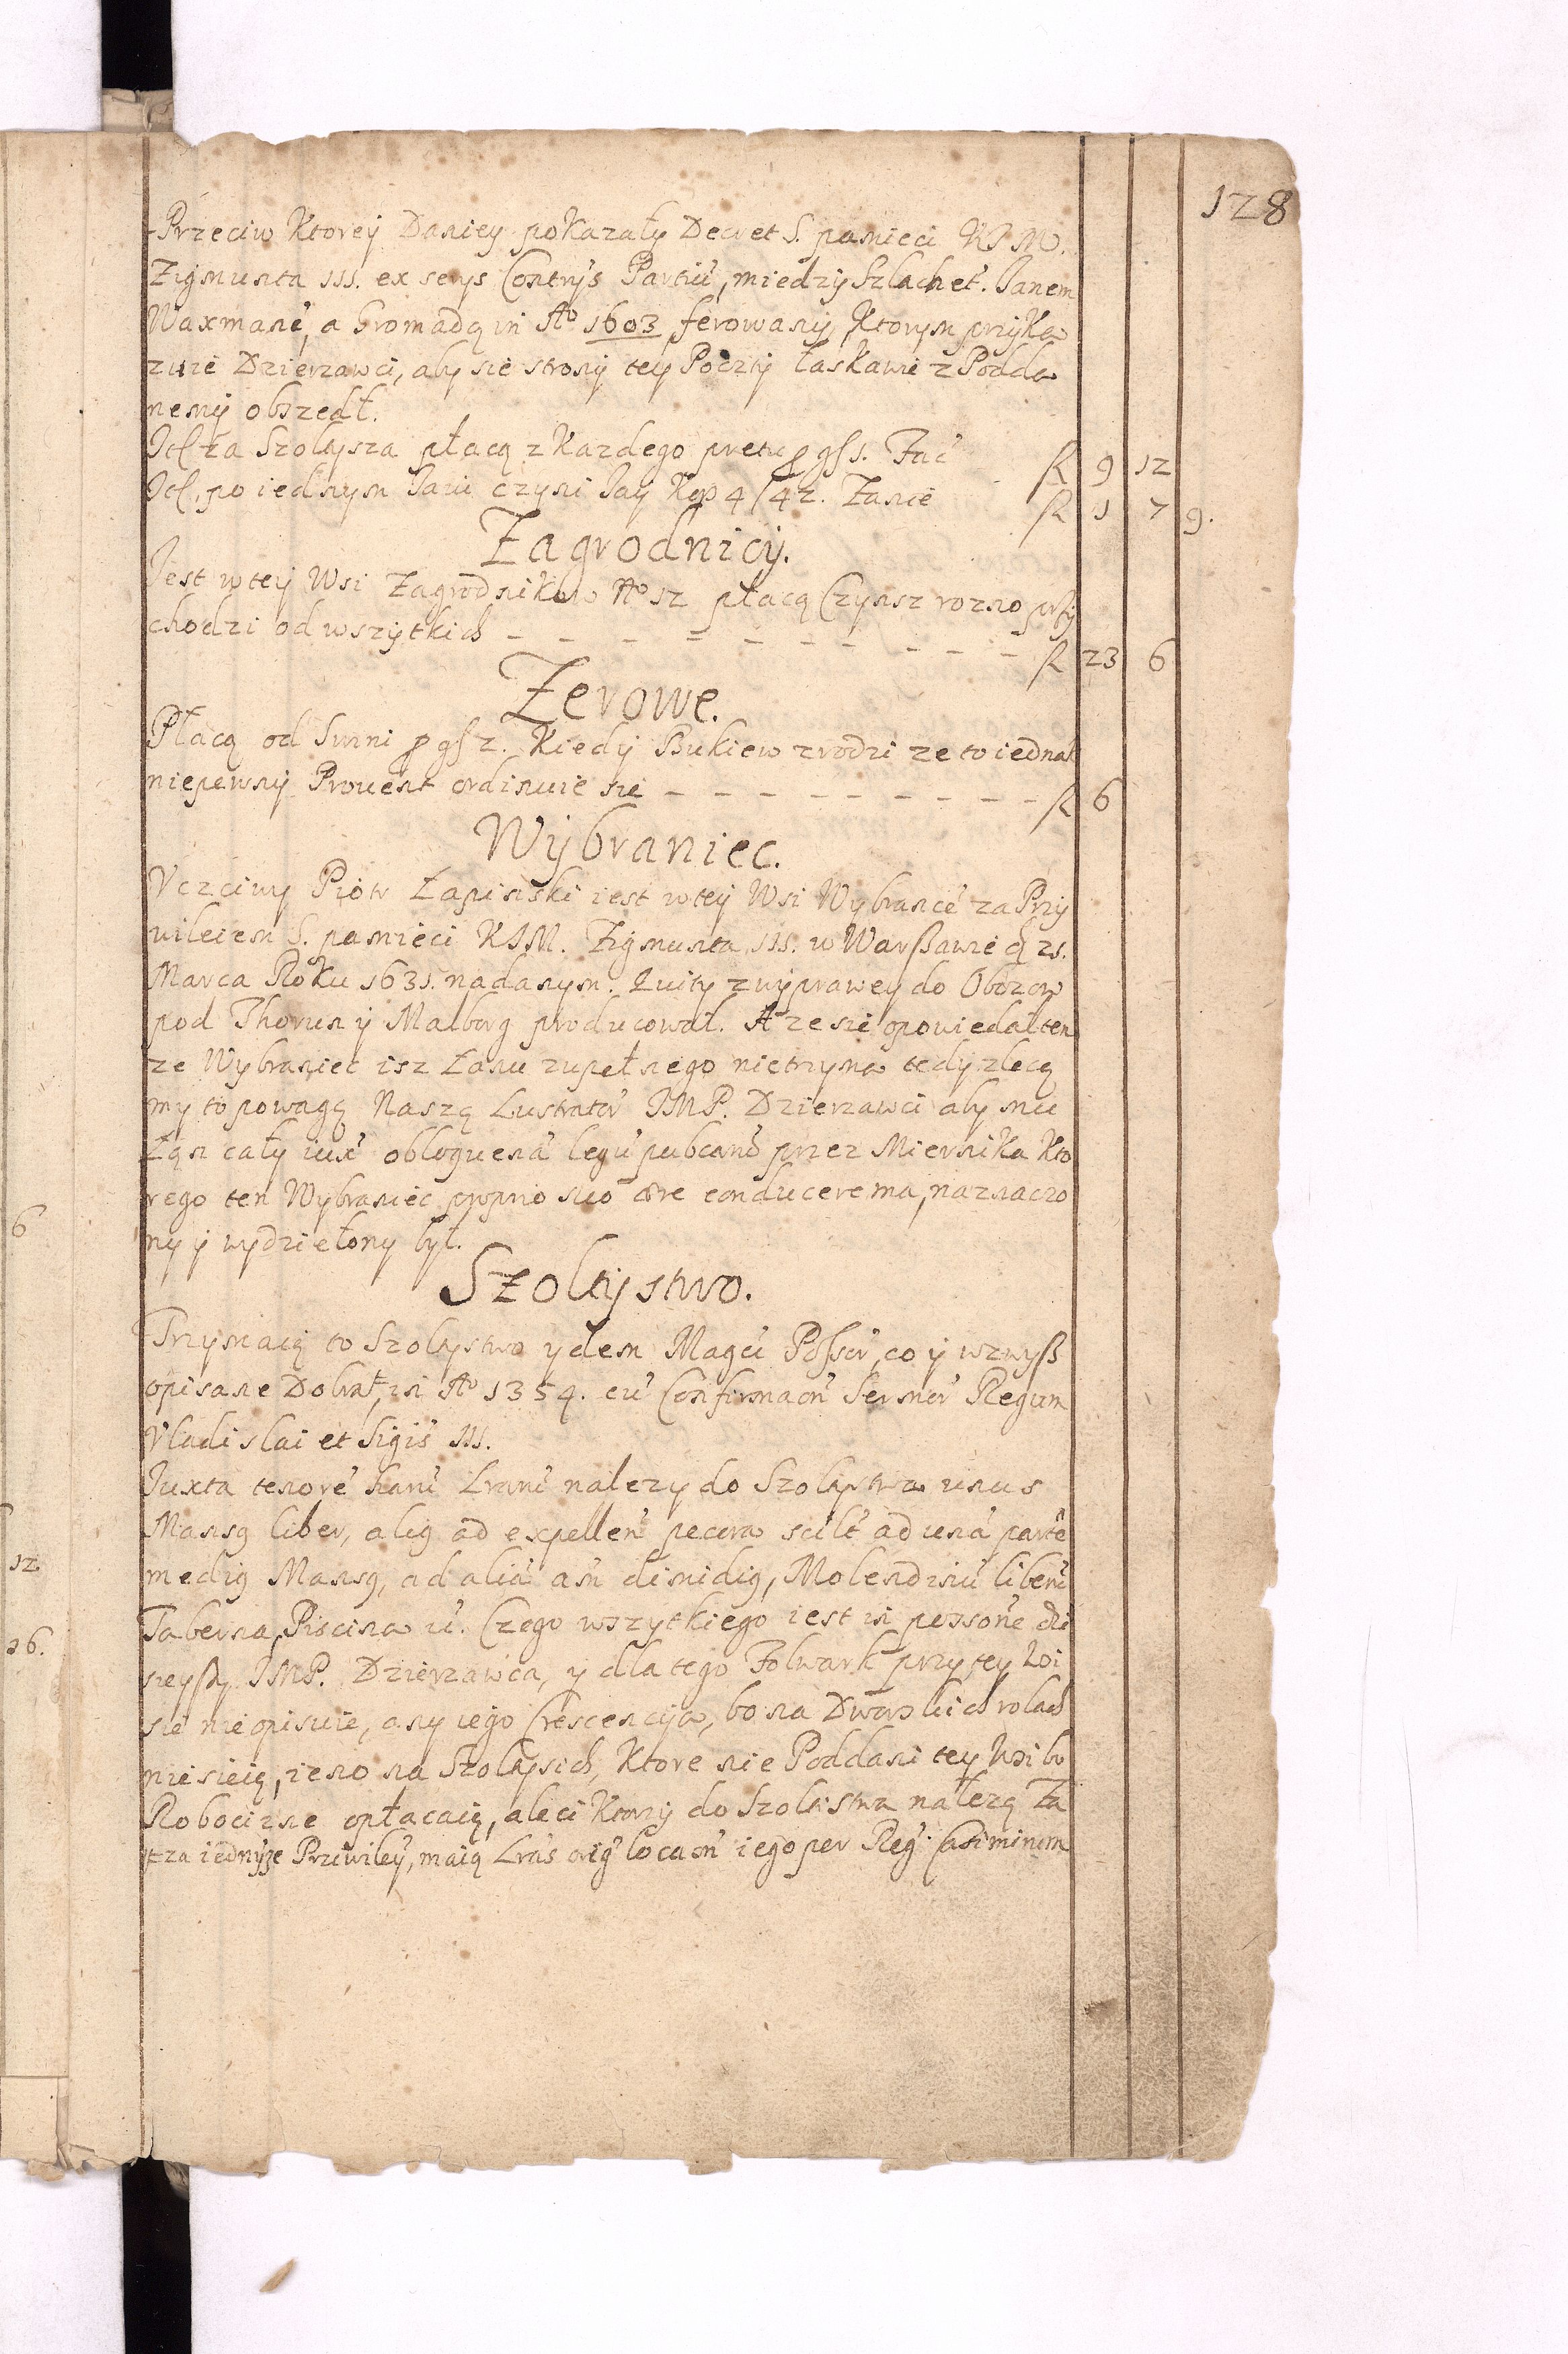 128
Przeciw Ktoreÿ Daniey pokazały Decret S. pamieci KJM.
Zÿgmunta III. ex serijs Contrijs Partiũ, miedzÿ Szlachet. Janem
Waxmanẽ, a Gromadą in Aº 1603 ferowanÿ, Ktorym przÿka
zuie Dzierzawci, aby sie stronÿ teÿ Poczty łaskawie z Podda
nemÿ obszedł.
Itẽ za Szołtysza płacą z Kazdego pretu ꝑ gſ 1. Faċ ſl 9 12
Itẽ. po iednym Jaiu czyni Jaÿ Kop 4/42. Zanie ſl 1 7 9.
Zagrodnicÿ.
Jest w teÿ Wsi Zagrodnikow Nº 12 płacą Czÿnsz rozno przÿ
chodzi od wszÿtkich - - - - - - - - - - - ſl 23 6
Zerowe.
Płacą od Swini ꝑ gſ 2. Kiedÿ Bukiew zrodzi ze to iednak
niepewnÿ Provent ordinuie sie - - - - - - - - - - ſl 6
Wÿbraniec.
Vczciwy Piotr Łapiński iest w teÿ Wsi Wÿbrancẽ za Przÿ
wileiem S. pamieci KJM. Zÿgmunta III. w Warßawie ꝗ 21.
Marca Roku 1631. nadanym. Quity z wÿprawey do Obozow
pod Thorun ÿ Malborg producował. A ze sie opowiedał ten
ze Wÿbraniec isz Łanu zupełnego nietrzyma tedy zlecą
my to powagą Naszą Lustratõr JMP. Dzierzawci aby mu
Łan całÿ iuxẽ obloquenã legũ pubcanũ przez Miernika Kto
rego ten Wÿbraniec proprio suo ære conducere ma, naznaczo
ny ÿ wydziełony był.
Szołtÿstwo.
Trzymaią to Szołtystwo ÿdem Magci Poſſor, co ÿ wzwyß
opisane Dobra, in Aº 1354. cũ Confirmaõn Sermor Regum
Vladislai et Sigiś III.
Juxta tenorẽ harũ Lrarũ nalezy do Szołtystwa unus
Mansꝯ liber, aliꝯ ad expellen pecora scilt ad unã partẽ
mediꝯ Mansꝯ, ad aliã añ dimidiꝯ, Molendinũ liberũ
Taberna, Piscina &c. Czego wszÿtkiego iest in possone dzi
sieyßy JMP. Dzierzawca, y dla tego Folwark przy tey Wsi
sie nie opisuie, any iego Crescencÿa, bo na Dworskich rolach
nie sieią, ieno na Szołtysich, Ktore nie Poddani tey Wsi bo
Robocizne opłacaią, ale ci Ktorzÿ do Szołtistwa nalezą Za
tza iednÿże Prziwileÿ, maią Lrás orig locaõn iego per Reg. Casimirum
6
12
16.